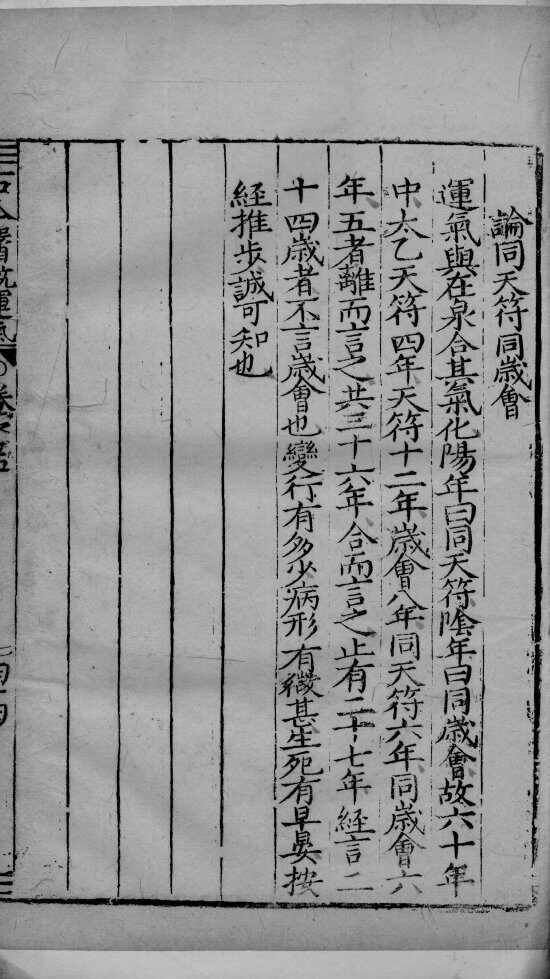 論同天符同歲會
運氣與在泉合其氣化陽年曰同天符陰年曰同歲會故六十年
中太乙天符四年天符十二年歲會八年同天符六年同歲會六
年五者離而言之共三十六年合而言之止有二十七年經言二
十四歲者不言歲會也變行有多少病形有微甚生死有早晏按
經推步誠可知也